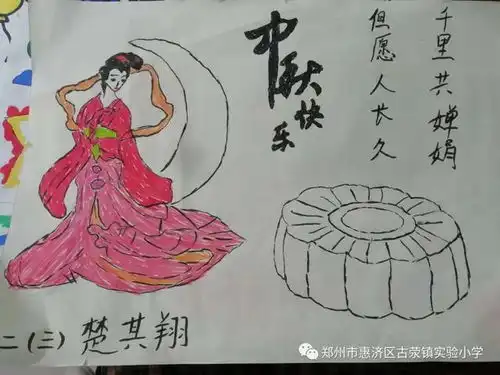 中秋快乐
但愿人长久
千里共婵娟
二(三) 楚其翔
郑州市惠济区古荥镇实验小学